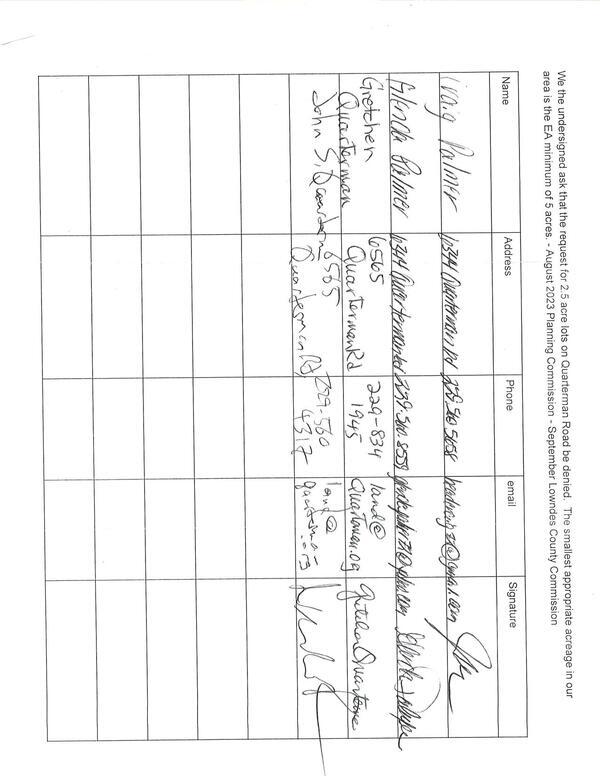 We the undersigned ask that the request for 2.5 acre lots on Quarterman Road be denied. The smallest appropriate acreage in our
area is the EA minimum of 5 acres. - August 2023 Planning Commission - September Lowndes County Commission
Name Address Phone email Signature
Craig Palmer 6344 Quarterman Rd 229 560 5658
Glenda Palmer 6344 Quarterman Rd
Gretchen
Quarterman
6565
Quarterman Rd
229-834
1945
land@
quarterman.org
Gretchen Quarterman
John S. Quarterman
6565
Quarterman Rd
229-560
4317
land@
quarterman.org